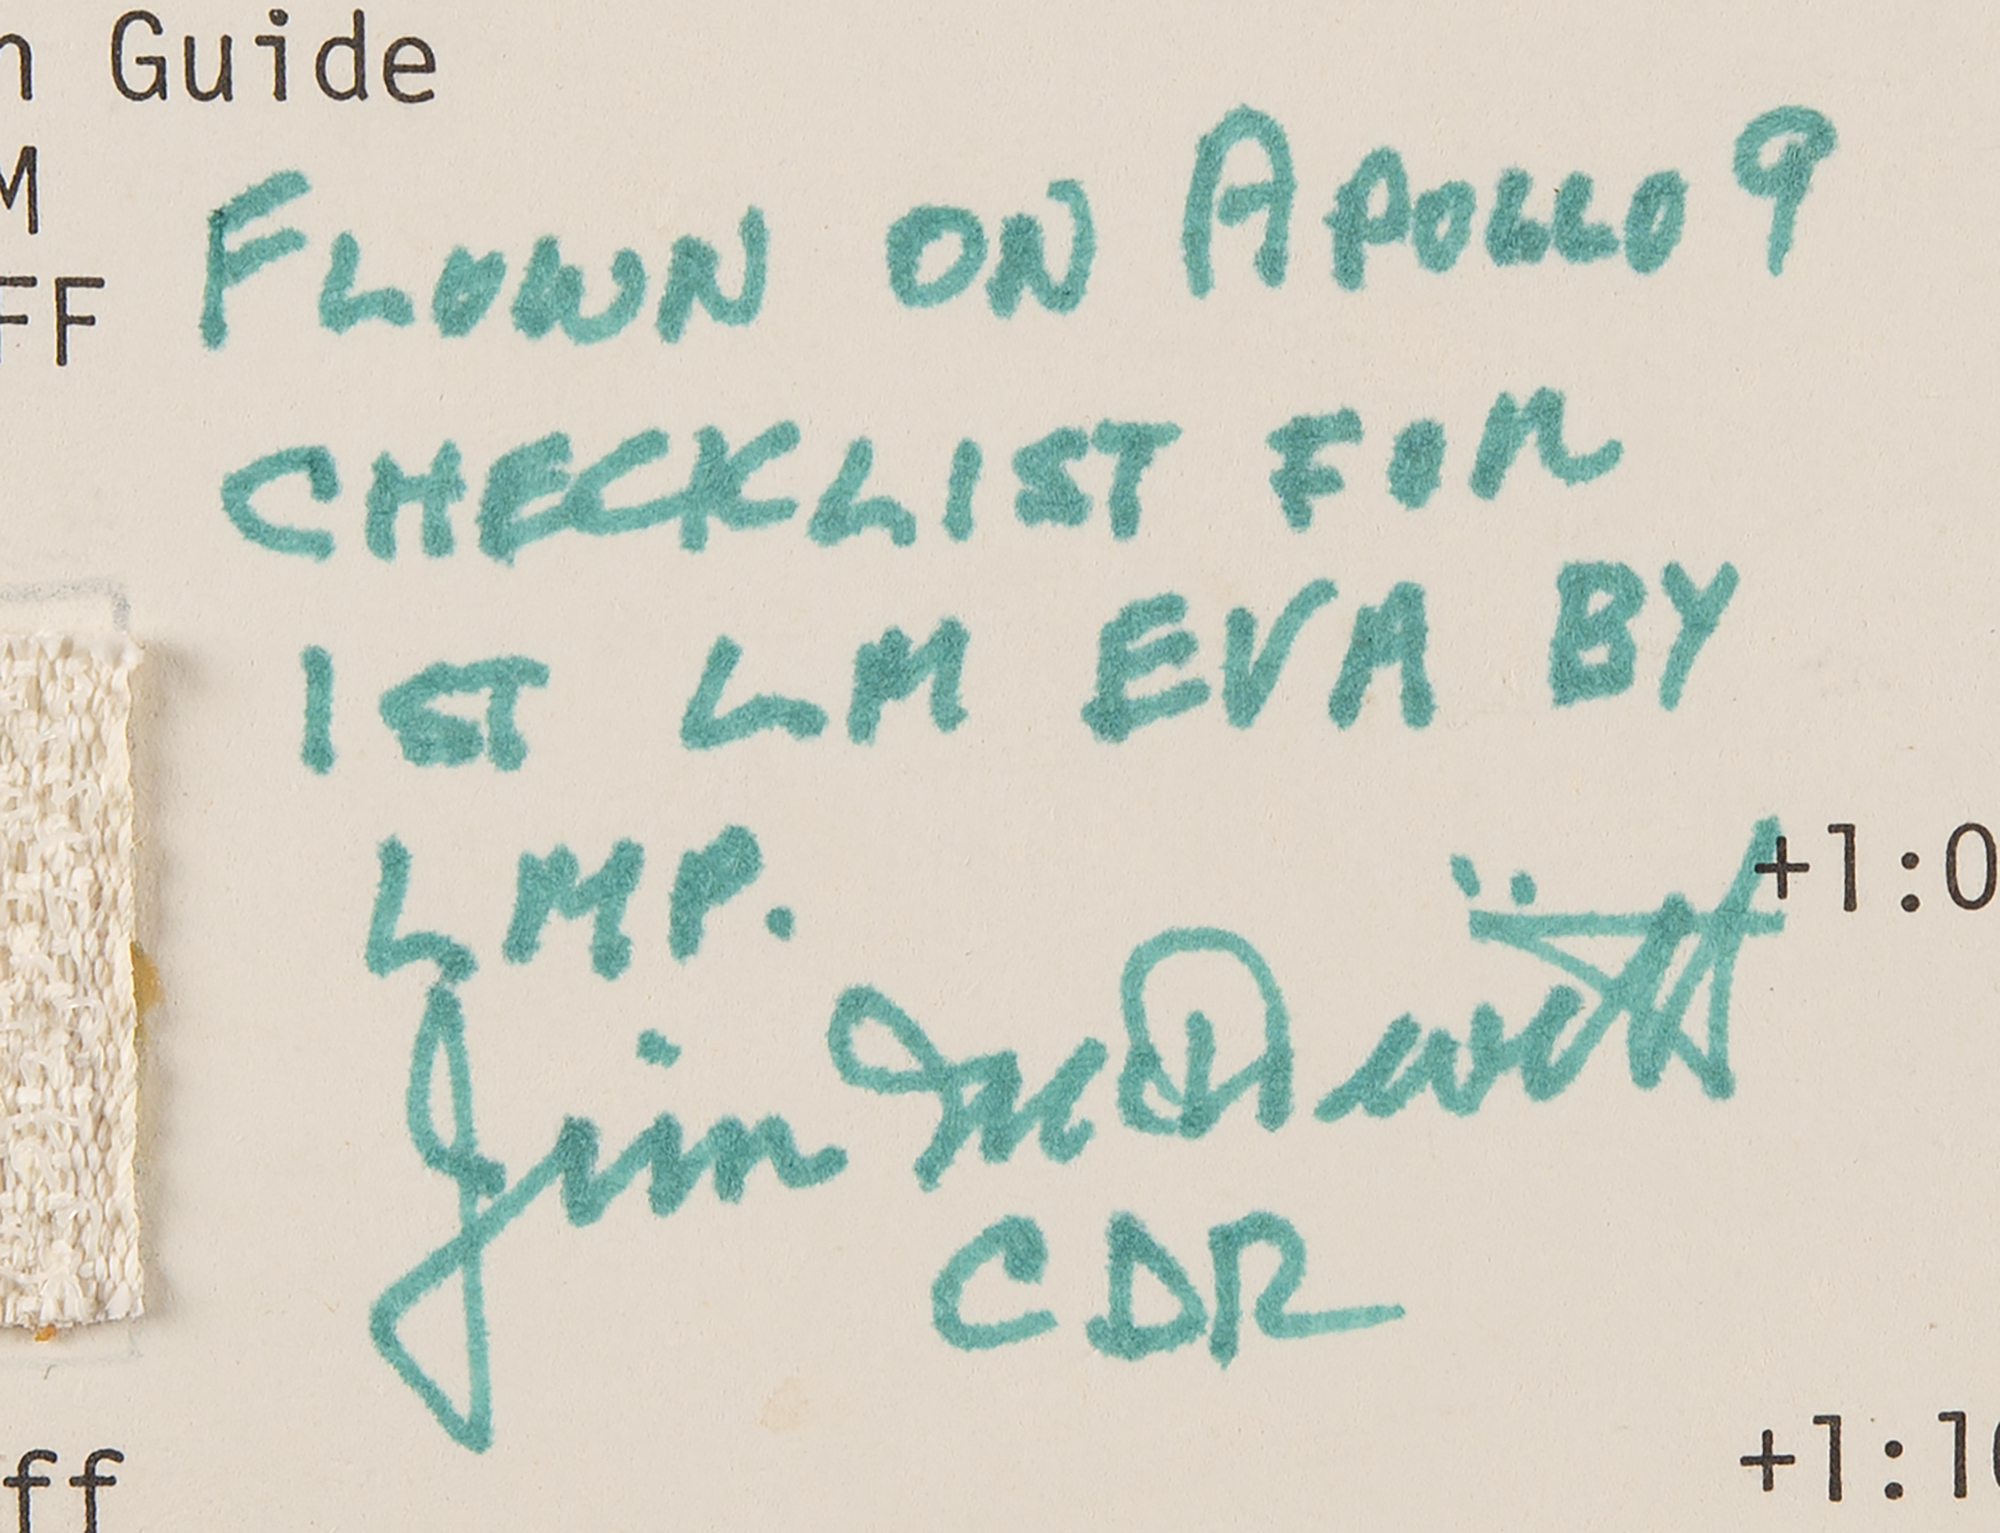 n Guide
M
FF
FLOWN ON APOLLO 9
CHECKLIST FOR
1ST LM EVA BY
LMP.
+1:0
Jim McDivitt
CDR
+1:10
ff